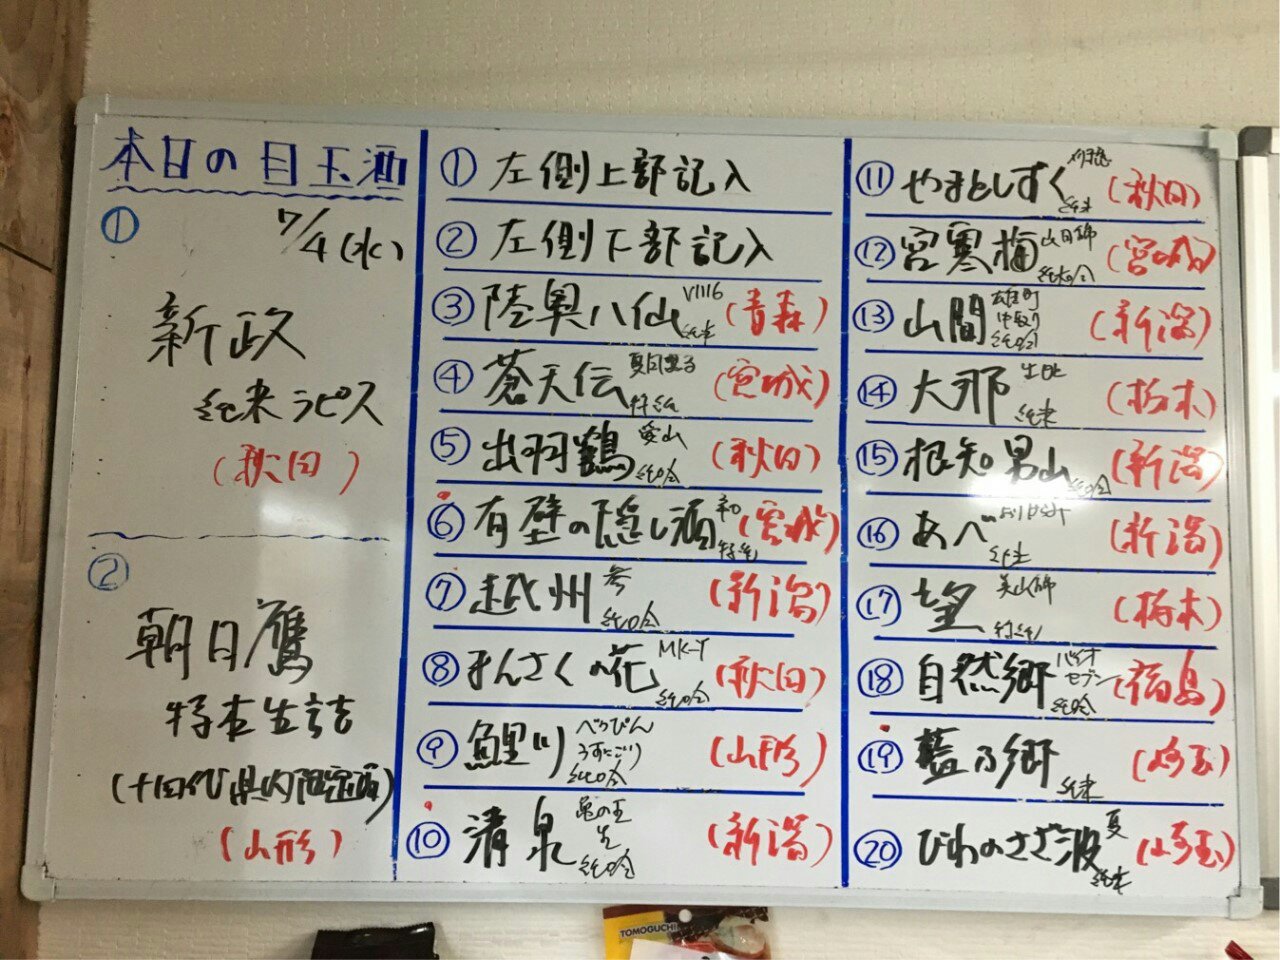 本日の目玉酒
① 7/4(水)
新政
純米ラピス
(秋田)
②
朝日鷹
特本生詰
(十四代県内限定酒)
(山形)
① 左側上部記入
② 左側下部記入
③ 陸奥八仙 V1116 純米 (青森)
④ 蒼天伝 夏向蔵る 特純 (宮城)
⑤ 出羽鶴 愛山 純吟 (秋田)
⑥ 有壁の隠し酒 和 特純 (宮城)
⑦ 越州 参 純吟 (新潟)
⑧ まんさくの花 MK-Y 純吟 (秋田)
⑨ 鯉川 べっぴん うすにごり 純吟 (山形)
⑩ 清泉 亀の王 生 純吟 (新潟)
⑪ やまとしずく 純米 (秋田)
⑫ 宮寒梅 山田錦 純吟 (宮城)
⑬ 山間 雄町 中取り 純吟 (新潟)
⑭ 大那 生酛 純米 (栃木)
⑮ 根知男山 純吟 (新潟)
⑯ あべ 純米 (新潟)
⑰ 望 美山錦 特純 (栃木)
⑱ 自然郷 バイオ セブン 純吟 (福島)
⑲ 藍の郷 純米 (埼玉)
⑳ びわのさざ波 夏 純米 (埼玉)
TOMOGUCHI